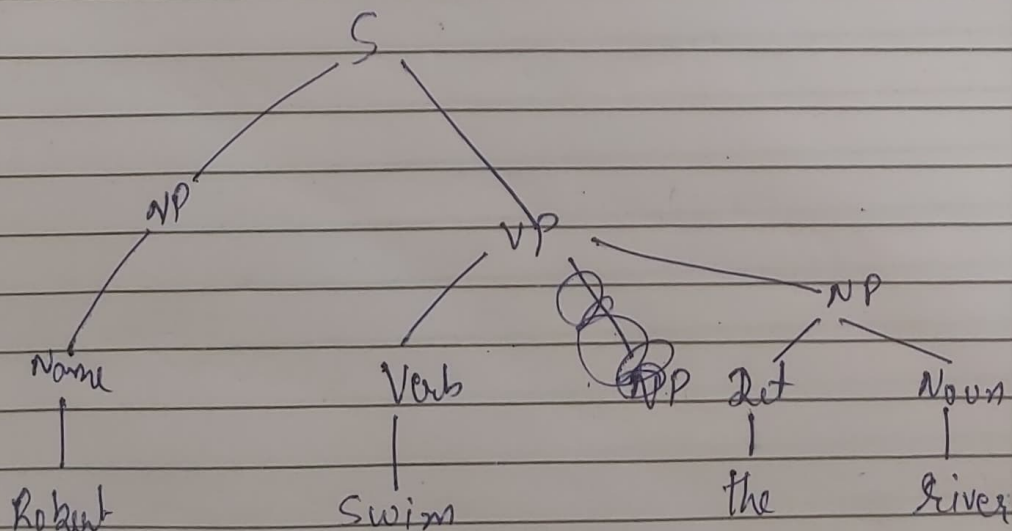 S
NP
VP
NP
Name Verb Det Noun
Robert Swim the river